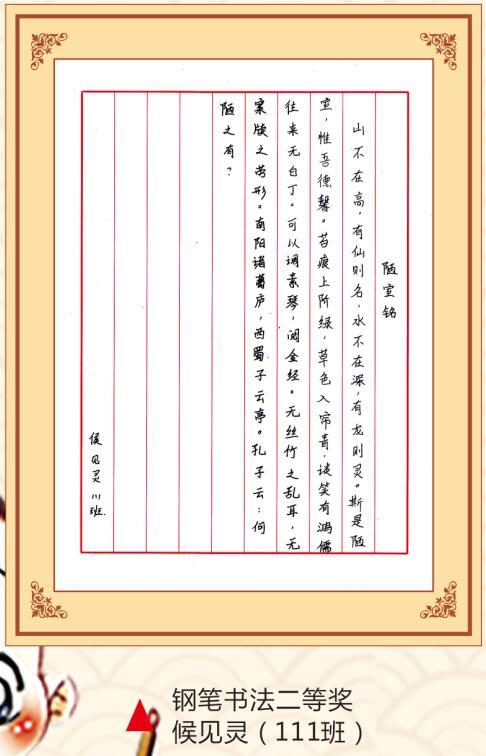 陋室铭
山不在高，有仙则名，水不在深，有龙则灵。斯是陋
室，惟吾德馨。苔痕上阶绿，草色入帘青，谈笑有鸿儒
往来无白丁。可以调素琴，阅金经。无丝竹之乱耳，无
案牍之劳形。南阳诸葛庐，西蜀子云亭。孔子云：何
陋之有？
候见灵 111班.
钢笔书法二等奖
候见灵（111班）